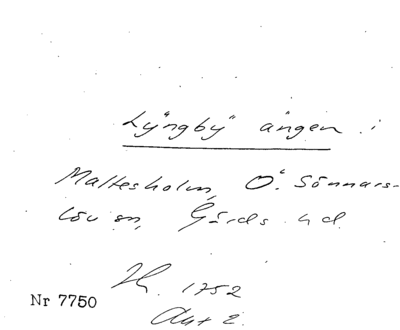 Lyngby ängen i
Maltesholm, Ö. Sönnars-
löv sn, Gärds hd.
1752
Nr 7750
Akt 2.